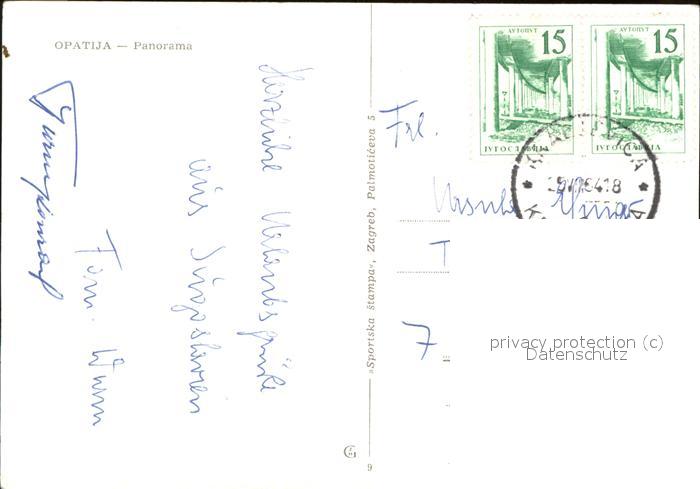 OPATIJA — Panorama
Herzliche Urlaubsgrüße
aus Jugoslawien
Fam. Wurm
»Sportska štampa«, Zagreb, Palmotićeva 5
9
АУТОПУТ 15
ЈУГОСЛАВИЈА
АУТОПУТ 15
ЈУГОСЛАВИЈА
Frl.
Ursula
T
7
privacy protection (c)
Datenschutz